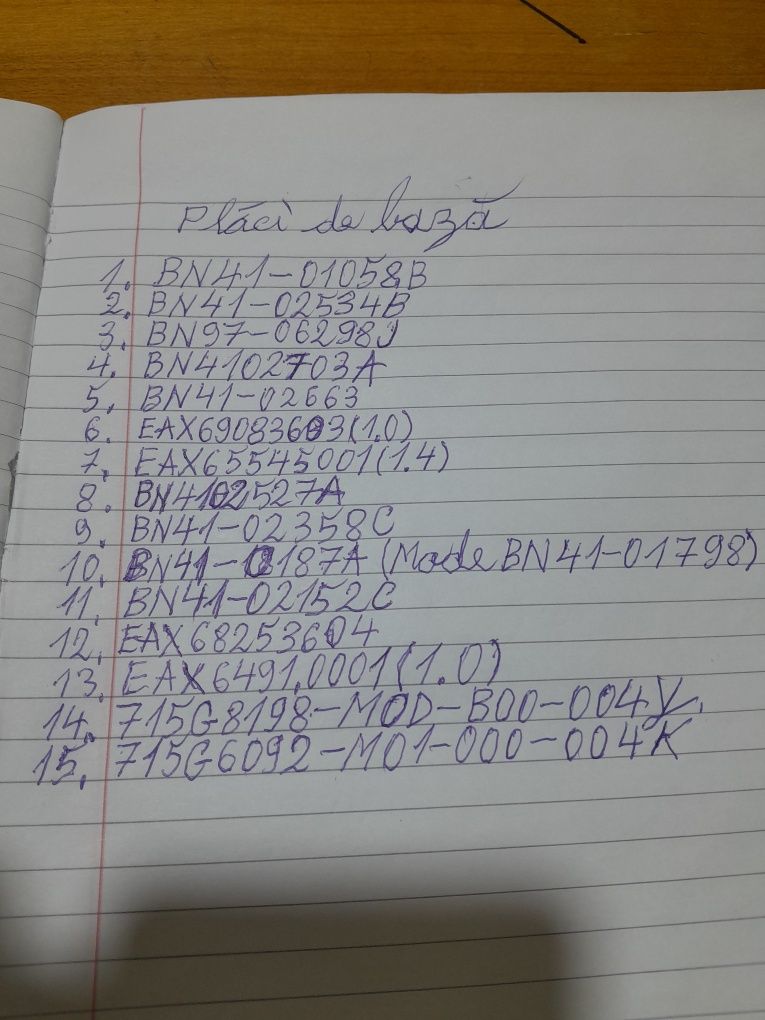 Plăci de bază
1. BN41-01058B
2. BN41-02534B
3. BN97-06298J
4. BN4102703A
5. BN41-02663
6. EAX69083603(1.0)
7. EAX65545001(1.4)
8. BN4102527A
9. BN41-02358C
10. BN41-0187A (Mode BN41-01798)
11. BN41-02152C
12. EAX68253604
13. EAX6491.0001(1.0)
14. 715G8198-MOD-B00-004Y.
15. 715G6092-M01-000-004K